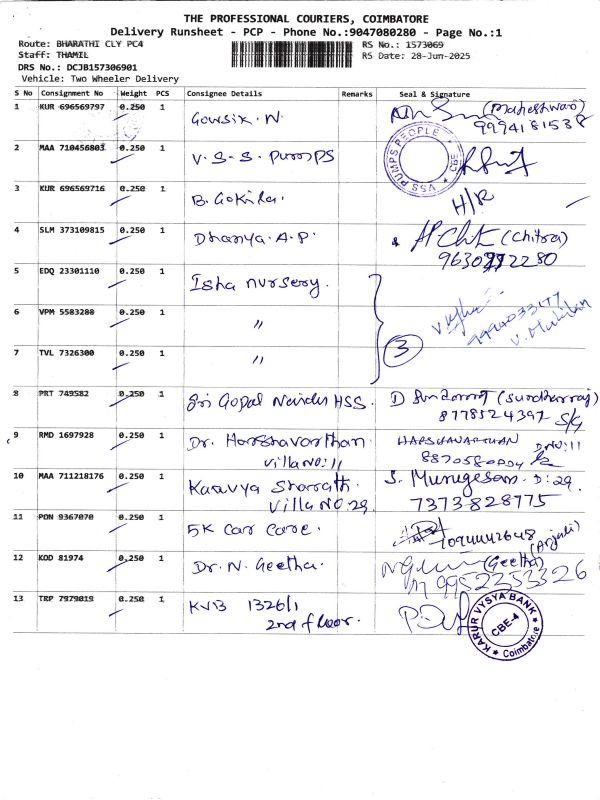 THE PROFESSIONAL COURIERS, COIMBATORE
Delivery Runsheet - PCP - Phone No.:9047080280 - Page No.:1
Route: BHARATHI CLY PC4 RS No.: 1573069
Staff: THAMIL RS Date: 28-Jun-2025
DRS No.: DCJB157306901
Vehicle: Two Wheeler Delivery
S No Consignment No Weight PCS Consignee Details Remarks Seal & Signature
1 KUR 696569797 0.250 1 Gowsik.N (Maheshwari)
9994181538
2 MAA 710456803 0.250 1 V.S.S. Pumps
VSS PUMPS PEOPLE CBE
3 KUR 696569716 0.250 1 B. Gokila. H/R
4 SLM 373109815 0.250 1 Dhanya.A.P. (Chitra)
5 EDQ 23301110 0.250 1 Isha nursery.
6 VPM 5583288 0.250 1 〃
V. Mukilan
7 TVL 7326300 0.250 1 〃 3
8 PRT 749582 0.250 1 Sri Gopal Naidu HSS. (Sundharraj)
8778524397 S/G
9 RMD 1697928 0.250 1 Dr. Harshavarthan. HARSHAVARTHAN D.No:11
Villa No: 11
10 MAA 711218176 0.250 1 Kaavya Sharrath. S. Murugesan. D:29.
Villa NO:29. 7373828775
11 PDN 9367070 0.250 1 5K Car Care. (Anjali)
12 KOD 81974 0.250 1 Dr. N. Geetha. (Geetha)
9952253326
13 TRP 7979019 0.250 1 KVB 1326/1
2nd floor.
KARUR VYSYA BANK CBE-4 Coimbatore